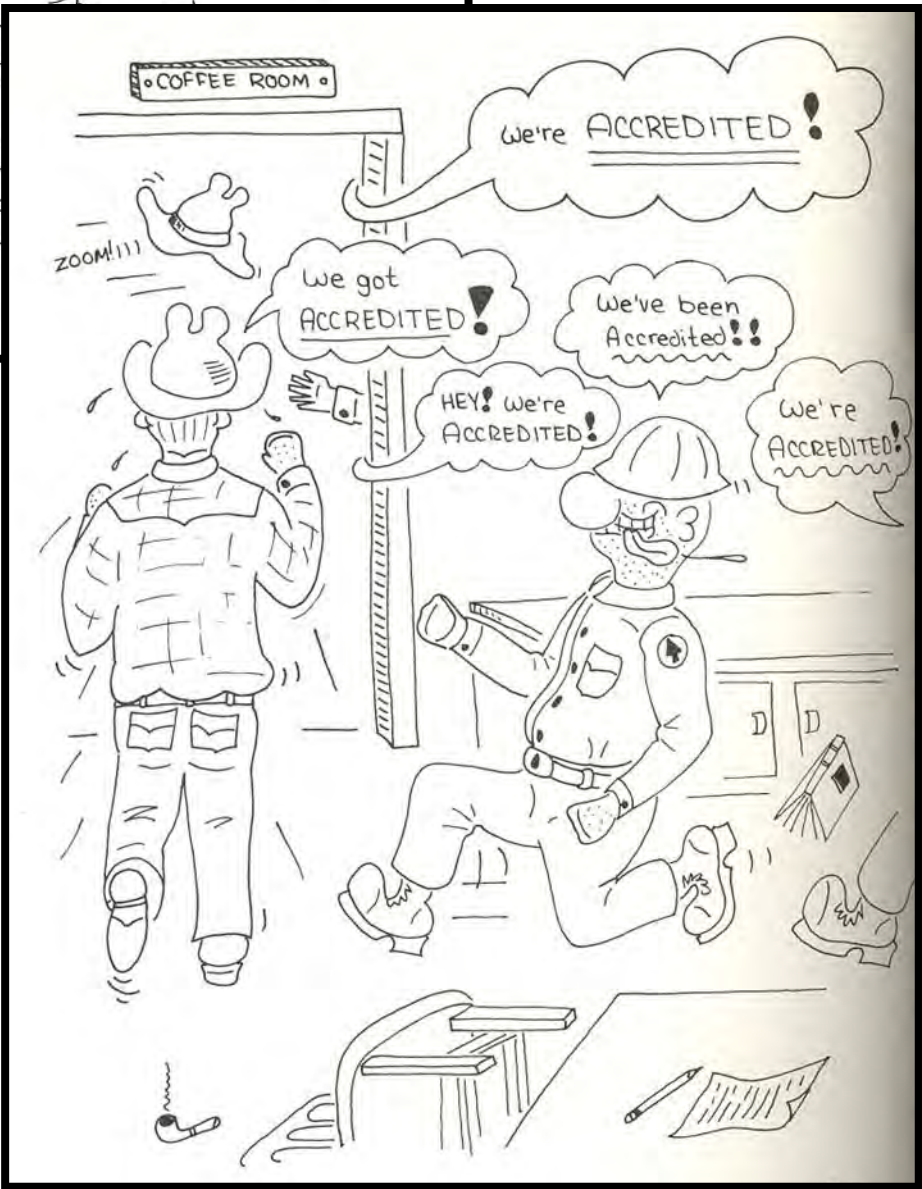 COFFEE ROOM
We're ACCREDITED!
ZOOM!!!!
We got
ACCREDITED!
We've been
Accredited!!
HEY! We're
ACCREDITED!
We're
ACCREDITED!